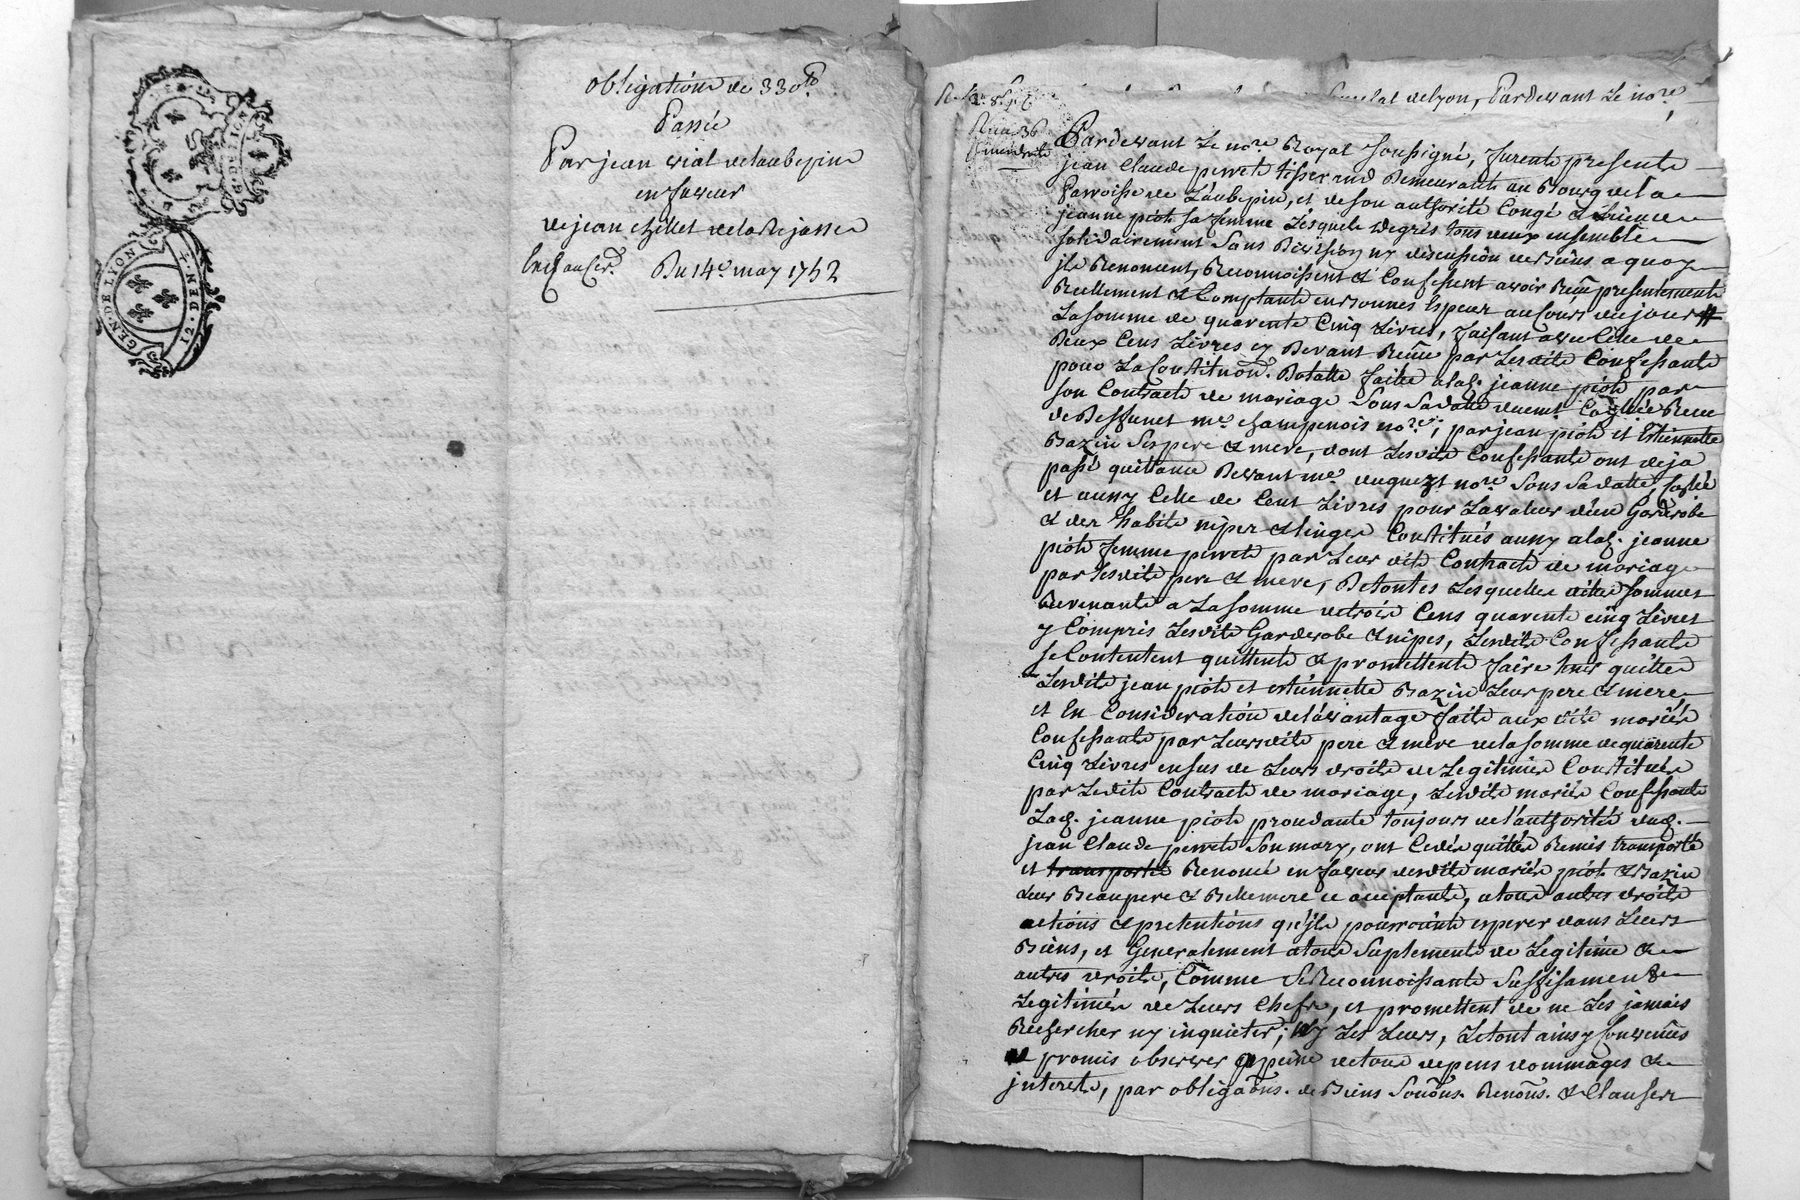 GEN. DE LYON
12. DEN.
G. D. LION
obligation de 330ᵗᵗ
Passée
Par jean vial de laubepin
en faveur
de jean chillet de la Rejasse
Du 14e may 1752
Consulat de lyon, Pardevant Le nore
Pardevant Le nore Royal soussigné, furent presents
jean Claude perret tisserand Demeurants au Bourg de la
Parroisse de L'aubepin, et de son authorité Congé & Licence
jeanne piot sa femme Lesquels de gres tous deux ensemble
solidairement Sans Division ny discussion de Biens a quoy
ils Renoncent, Reconnoissent & Confessent avoir Reçu presentement
Reellement & Comptants en bonnes especes au Cours de jour #
La somme de quarente Cinq Livres, faisant avec Celle de
Deux Cens Livres cy Devant Reçue par Lesdits Confessants
pour La Constituon. Dotalle faite alad. jeanne piot par
son Contract de mariage Sous Sa datte duement Coollé Receu
de Deffunct me. champenois nore, par jean piot et Estiennette
Bazin Ses pere & mere, dont Lesdits Confessants ont deja
passé quittance Devant me. duguezt nore Sous Sa datte Coollé
et aussy Celle de Cent Livres pour La valeur d'un Garderobe
& des habits nipes & linges Constitués aussy alad. jeanne
piot femme perret par Leur dit Contract de mariage
par Lesdits pere & mere, De toutes Lesquelles dittes Sommes
Revenants a La Somme de trois Cens quarente cinq Livres
y Compris Lesdits Garderobe & nipes, Lesdits Confessants
se Contentent quittent & promettent faire tenir quittes
Lesdits jean piot et estiennette Bazin Leurs pere & mere
et En Consideration de l'avantage faite aux dits mariés
Confessants par Leursdits pere & mere de la somme de quarente
Cinq Livres en sus de Leurs droits de Legitimes Constitués
par Ledit Contract de mariage, Lesdits mariés Confessants
Lad. jeanne piot procedante toujours de l'authorité dud.
jean Claude perret Son mary, ont Cedés quittés Remis transportés
et transporté Renoncé en faveur desdits mariés piot & Bazin
Leurs Beaupere & Bellemere ce aceptants, a tous autres droits
actions & pretentions qu'ils pourroint esperer dans Leurs
Biens, et Generalement a tous Suplements de Legitime &
autres droits, Comme Se Reconnoissants Suffisament
Legitimés de Leurs Chefs, et promettent de ne Les jamais
Rechercher ny inquieter, Ny Les Leurs, Le tout ainsy Convenus
& promis observer a peine de tous depens dommages &
interets, par obligaons. de Biens Soûons. Renons. & Clauses